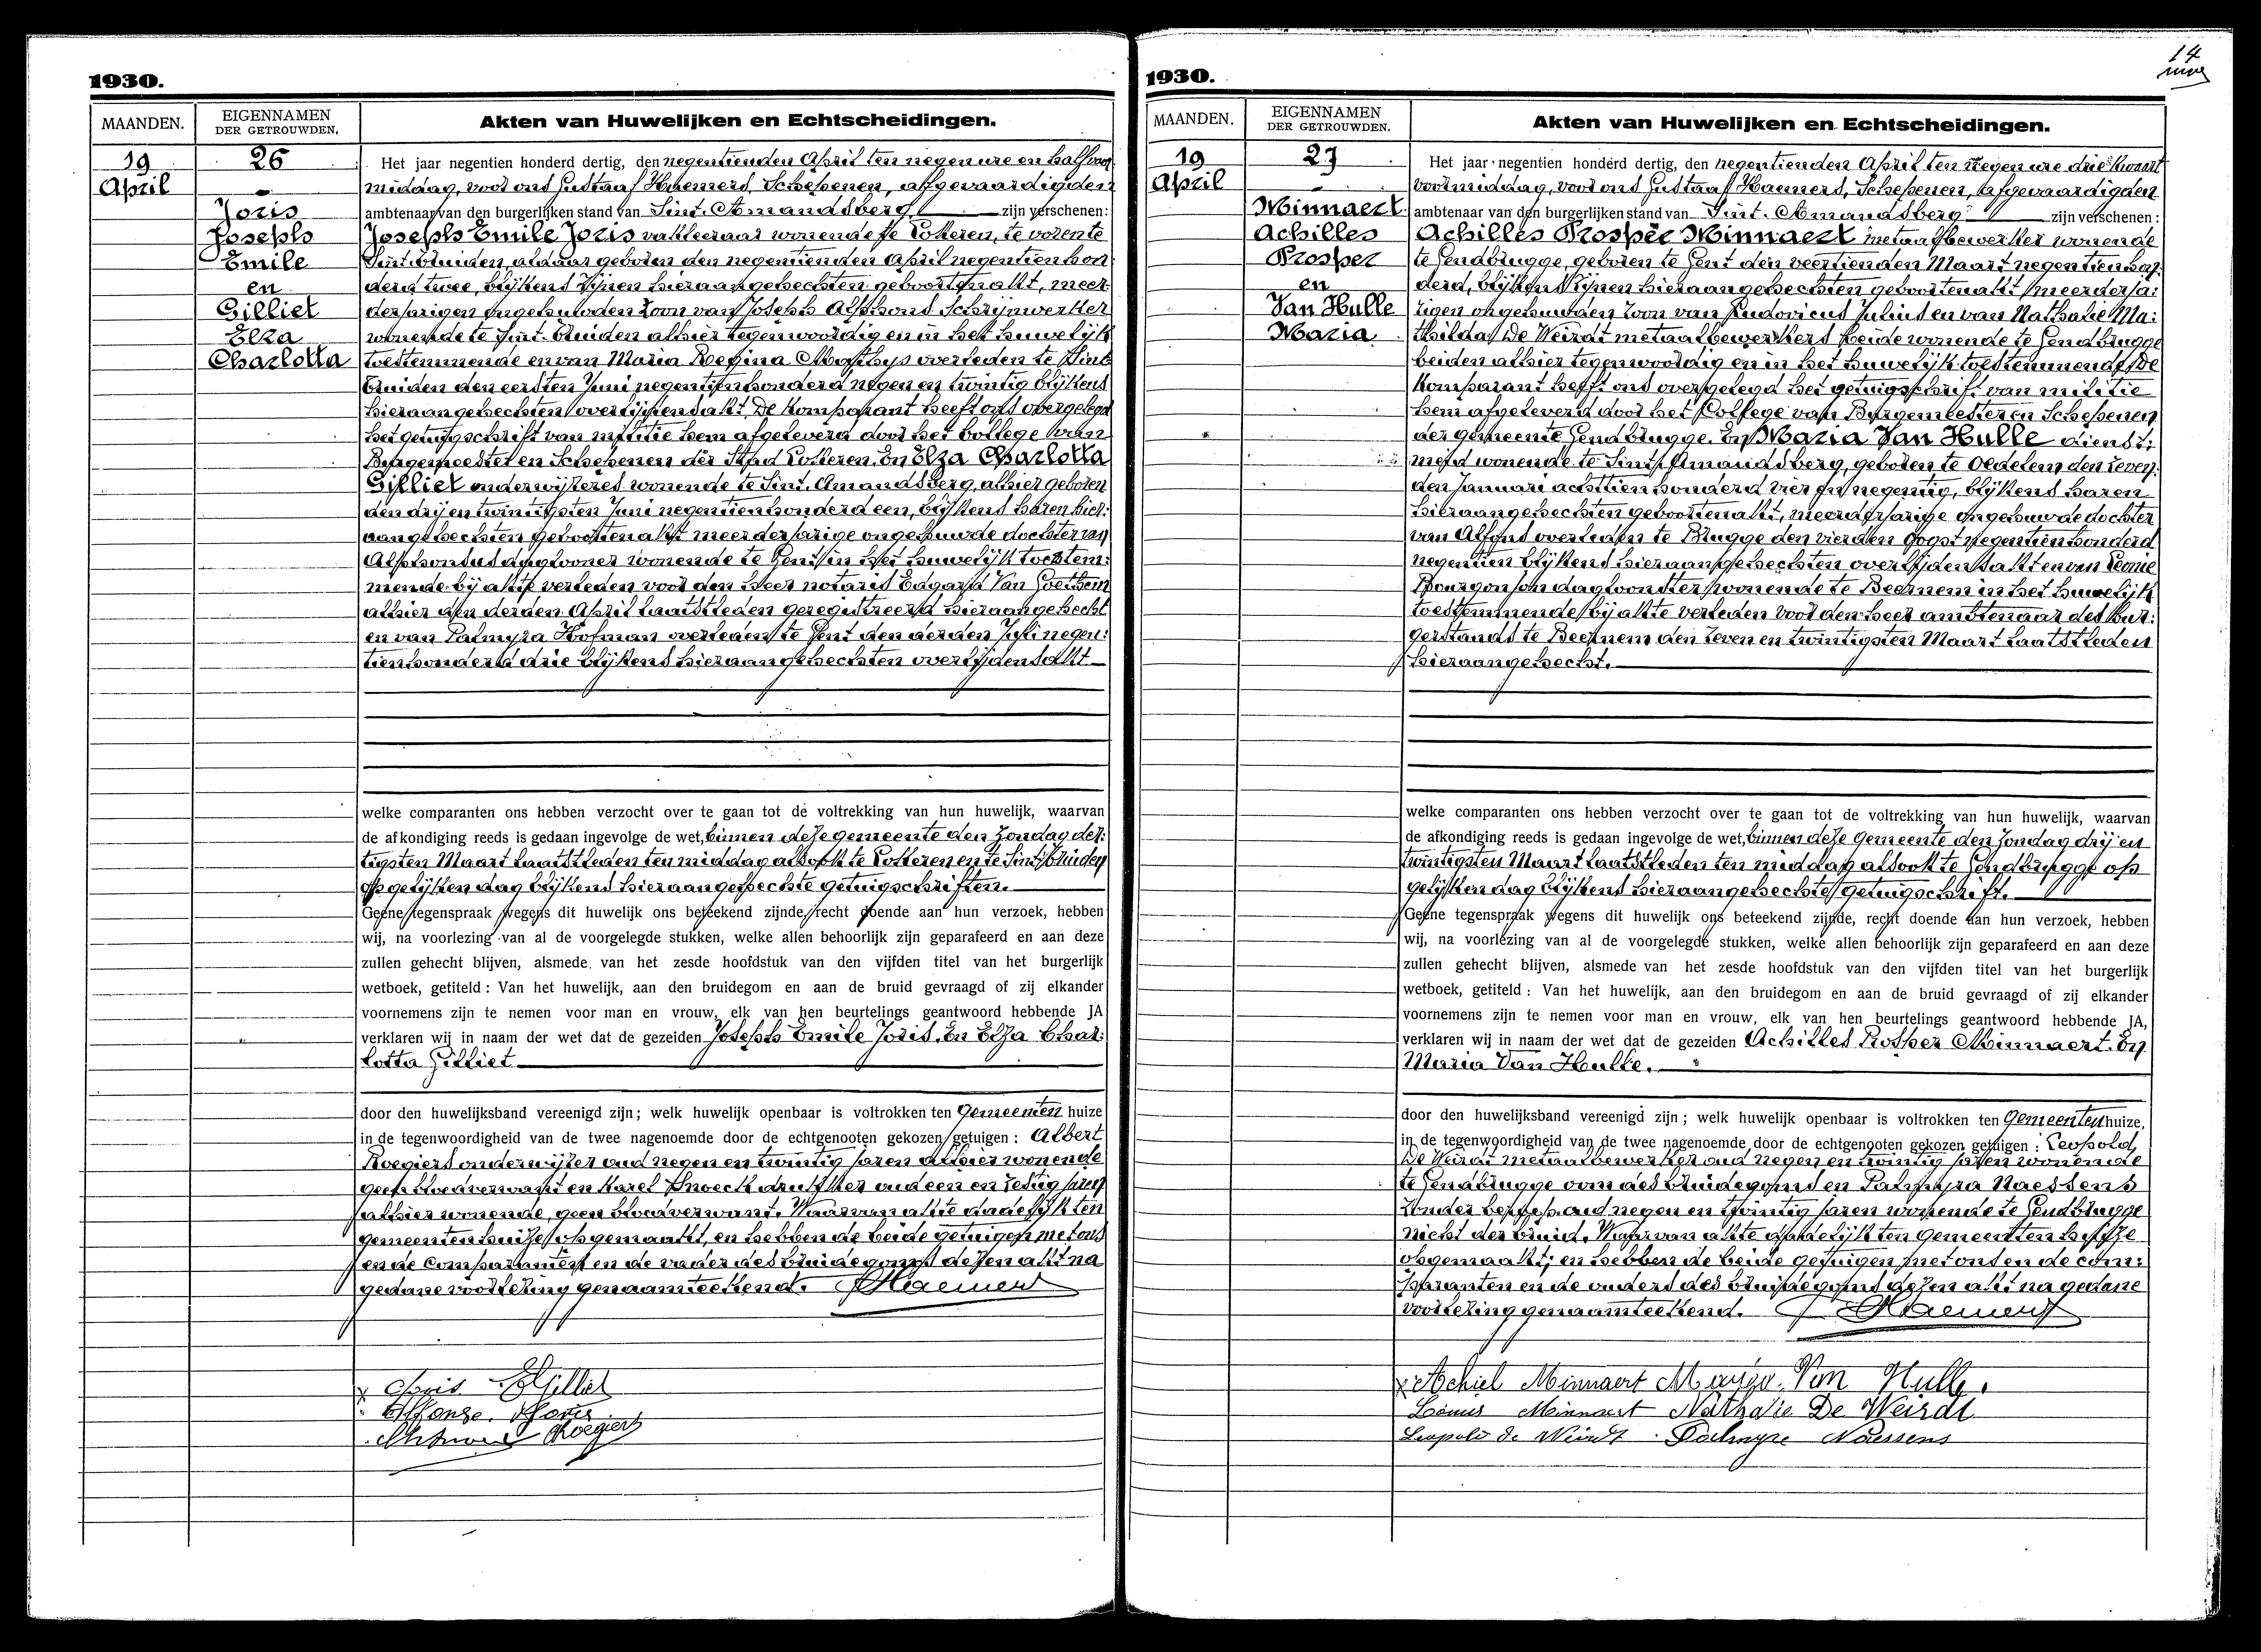 1930.
MAANDEN.
EIGENNAMEN
DER GETROUWDEN.
Akten van Huwelijken en Echtscheidingen.
19
April
26
Joris
Joseph
Emile
en
Gilliet
Elza
Charlotta
Het jaar negentien honderd dertig, den negentienden April ten negen ure en half voor
middag, voor ons Gustaaf Haemers, Schepenen, afgevaardigden
ambtenaar van den burgerlijken stand van Sint-Amandsberg zijn verschenen:
Joseph Emile Joris vakleeraar wonende te Lokeren, te voren te
Sint Kruiden, aldaar geboren den negentienden April negentien hon
derd twee, blijkens zijnen hieraangehechten geboortenakt, meer:
derjarigen ongehuwden zoon van Joseph Alphons Schrijnwerker
wonende te Sint-Kruiden alhier tegenwoordig en in het huwelijk
toestemmende en van Maria Regina overleden te Sint
Kruiden den eersten Juni negentienhonderd negen en twintig blijkens
hieraangehechten overlijdensakt. De komparant heeft ons overgelegd
het getuigschrift van militie hem afgeleverd door het College van
Burgemeester en Schepenen der Stad Lokeren. En Elza Charlotta
Gilliet onderwijzeres wonende te Sint-Amandsberg, alhier geboren
den drij en twintigsten Juni negentienhonderd een, blijkens haren hier:
aangehechten geboortenakt meerderjarige ongehuwde dochter van
Alphonsus dagloner wonende te Gent in het huwelijk toestem:
mende bij akte verleden voor den heer notaris Edgard Van Goethem
alhier den derden April laatstleden geregistreerd hieraangehecht
en van Palmyra Hofman overleden te Gent den derden Juli negen:
tienhonderd drie blijkens hieraangehechten overlijdensakt
welke comparanten ons hebben verzocht over te gaan tot de voltrekking van hun huwelijk, waarvan
de afkondiging reeds is gedaan ingevolge de wet, binnen deze gemeente den Zondag der:
tigsten Maart laatstleden ten middag alsook te Lokeren en te Sint Kruiden
op gelijken dag blijkens hieraangehechte getuigschriften.
Geene tegenspraak wegens dit huwelijk ons beteekend zijnde, recht doende aan hun verzoek, hebben
wij, na voorlezing van al de voorgelegde stukken, welke allen behoorlijk zijn geparafeerd en aan deze
zullen gehecht blijven, alsmede van het zesde hoofdstuk van den vijfden titel van het burgerlijk
wetboek, getiteld: Van het huwelijk, aan den bruidegom en aan de bruid gevraagd of zij elkander
voornemens zijn te nemen voor man en vrouw, elk van hen beurtelings geantwoord hebbende JA
verklaren wij in naam der wet dat de gezeiden Joseph Emile Joris. En Elza Char:
lotta Gilliet
door den huwelijksband vereenigd zijn; welk huwelijk openbaar is voltrokken ten Gemeenten huize
in de tegenwoordigheid van de twee nagenoemde door de echtgenooten gekozen getuigen: Albert
Roegiers onderwijzer oud negen en twintig jaren alhier wonende
geen bloedverwant en Karel Snoeck drukker oud een en zestig jaren
alhier wonende, geen bloedverwant. Waarvan akte dadelijk ten
gemeentenhuize opgemaakt, en hebben de beide getuigen met ons
en de comparanten en de vader des bruidegoms dezen akt na
gedane voorlezing genaamteekend. Haemers
Joris EGilliet
Alfonze Joris
Roegiers
14
1930.
MAANDEN.
EIGENNAMEN
DER GETROUWDEN.
Akten van Huwelijken en Echtscheidingen.
19
April
27
Minnaert
Achilles
Prosper
en
Van Hulle
Maria
Het jaar negentien honderd dertig, den negentienden April ten negen ure drie kwaart
voormiddag, voor ons Gustaaf Haemers, Schepenen, afgevaardigden
ambtenaar van den burgerlijken stand van Sint-Amandsberg zijn verschenen:
Achilles Prosper Minnaert metaalbewerker wonende
te Gendbrugge, geboren te Gent den veertienden Maart negentienhon:
derd, blijkens zijnen hieraangehechten geboortenakt, meerderja:
rigen ongehuwden zoon van Ludovicus Julius en van Nathalie Ma:
thilda De Weirdt metaalbewerkers beide wonende te Gendbrugge
beiden alhier tegenwoordig en in het huwelijk toestemmende. De
komparant heeft ons overgelegd het getuigschrift van militie
hem afgeleverd door het College van Burgemeester en Schepenen
der gemeente Gendbrugge. En Maria Van Hulle dienst:
meid wonende te Sint-Amandsberg, geboren te Oedelem den zeven:
den Januari achttienhonderd vier en negentig, blijkens haren
hieraangehechten geboortenakt, meerderjarige ongehuwde dochter
van Alfons overleden te Brugge den vierden Oogst negentienhonderd
negentien blijkens hieraangehechten overlijdensakt en van Leonie
Bourgonjon dagloonster wonende te Beernem in het huwelijk
toestemmende bij akte verleden voor den heer ambtenaar des bur:
gerstands te Beernem den zeven en twintigsten Maart laatstleden
hieraangehecht.
welke comparanten ons hebben verzocht over te gaan tot de voltrekking van hun huwelijk, waarvan
de afkondiging reeds is gedaan ingevolge de wet, binnen deze gemeente den Zondag drij en
twintigsten Maart laatstleden ten middag alsook te Gendbrugge op
gelijken dag blijkens hieraangehechte getuigschrift.
Geene tegenspraak wegens dit huwelijk ons beteekend zijnde, recht doende aan hun verzoek, hebben
wij, na voorlezing van al de voorgelegde stukken, welke allen behoorlijk zijn geparafeerd en aan deze
zullen gehecht blijven, alsmede van het zesde hoofdstuk van den vijfden titel van het burgerlijk
wetboek, getiteld: Van het huwelijk, aan den bruidegom en aan de bruid gevraagd of zij elkander
voornemens zijn te nemen voor man en vrouw, elk van hen beurtelings geantwoord hebbende JA,
verklaren wij in naam der wet dat de gezeiden Achilles Prosper Minnaert. En
Maria Van Hulle.
door den huwelijksband vereenigd zijn; welk huwelijk openbaar is voltrokken ten Gemeenten huize,
in de tegenwoordigheid van de twee nagenoemde door de echtgenooten gekozen getuigen: Leopold
De Weirdt metaalbewerker oud negen en twintig jaren wonende
te Gendbrugge oom des bruidegoms en Palmyra Naessens
zonder beroep oud negen en twintig jaren wonende te Gendbrugge
nicht der bruid. Waarvan akte dadelijk ten gemeentenhuize
opgemaakt; en hebben de beide getuigen met ons en de com:
paranten en de ouders des bruidegoms dezen akt na gedane
voorlezing genaamteekend. Haemers
Achiel Minnaert Maria Van Hulle.
Louis Minnaert Nathalie De Weirdt
Leopold De Weirdt Palmyre Naessens